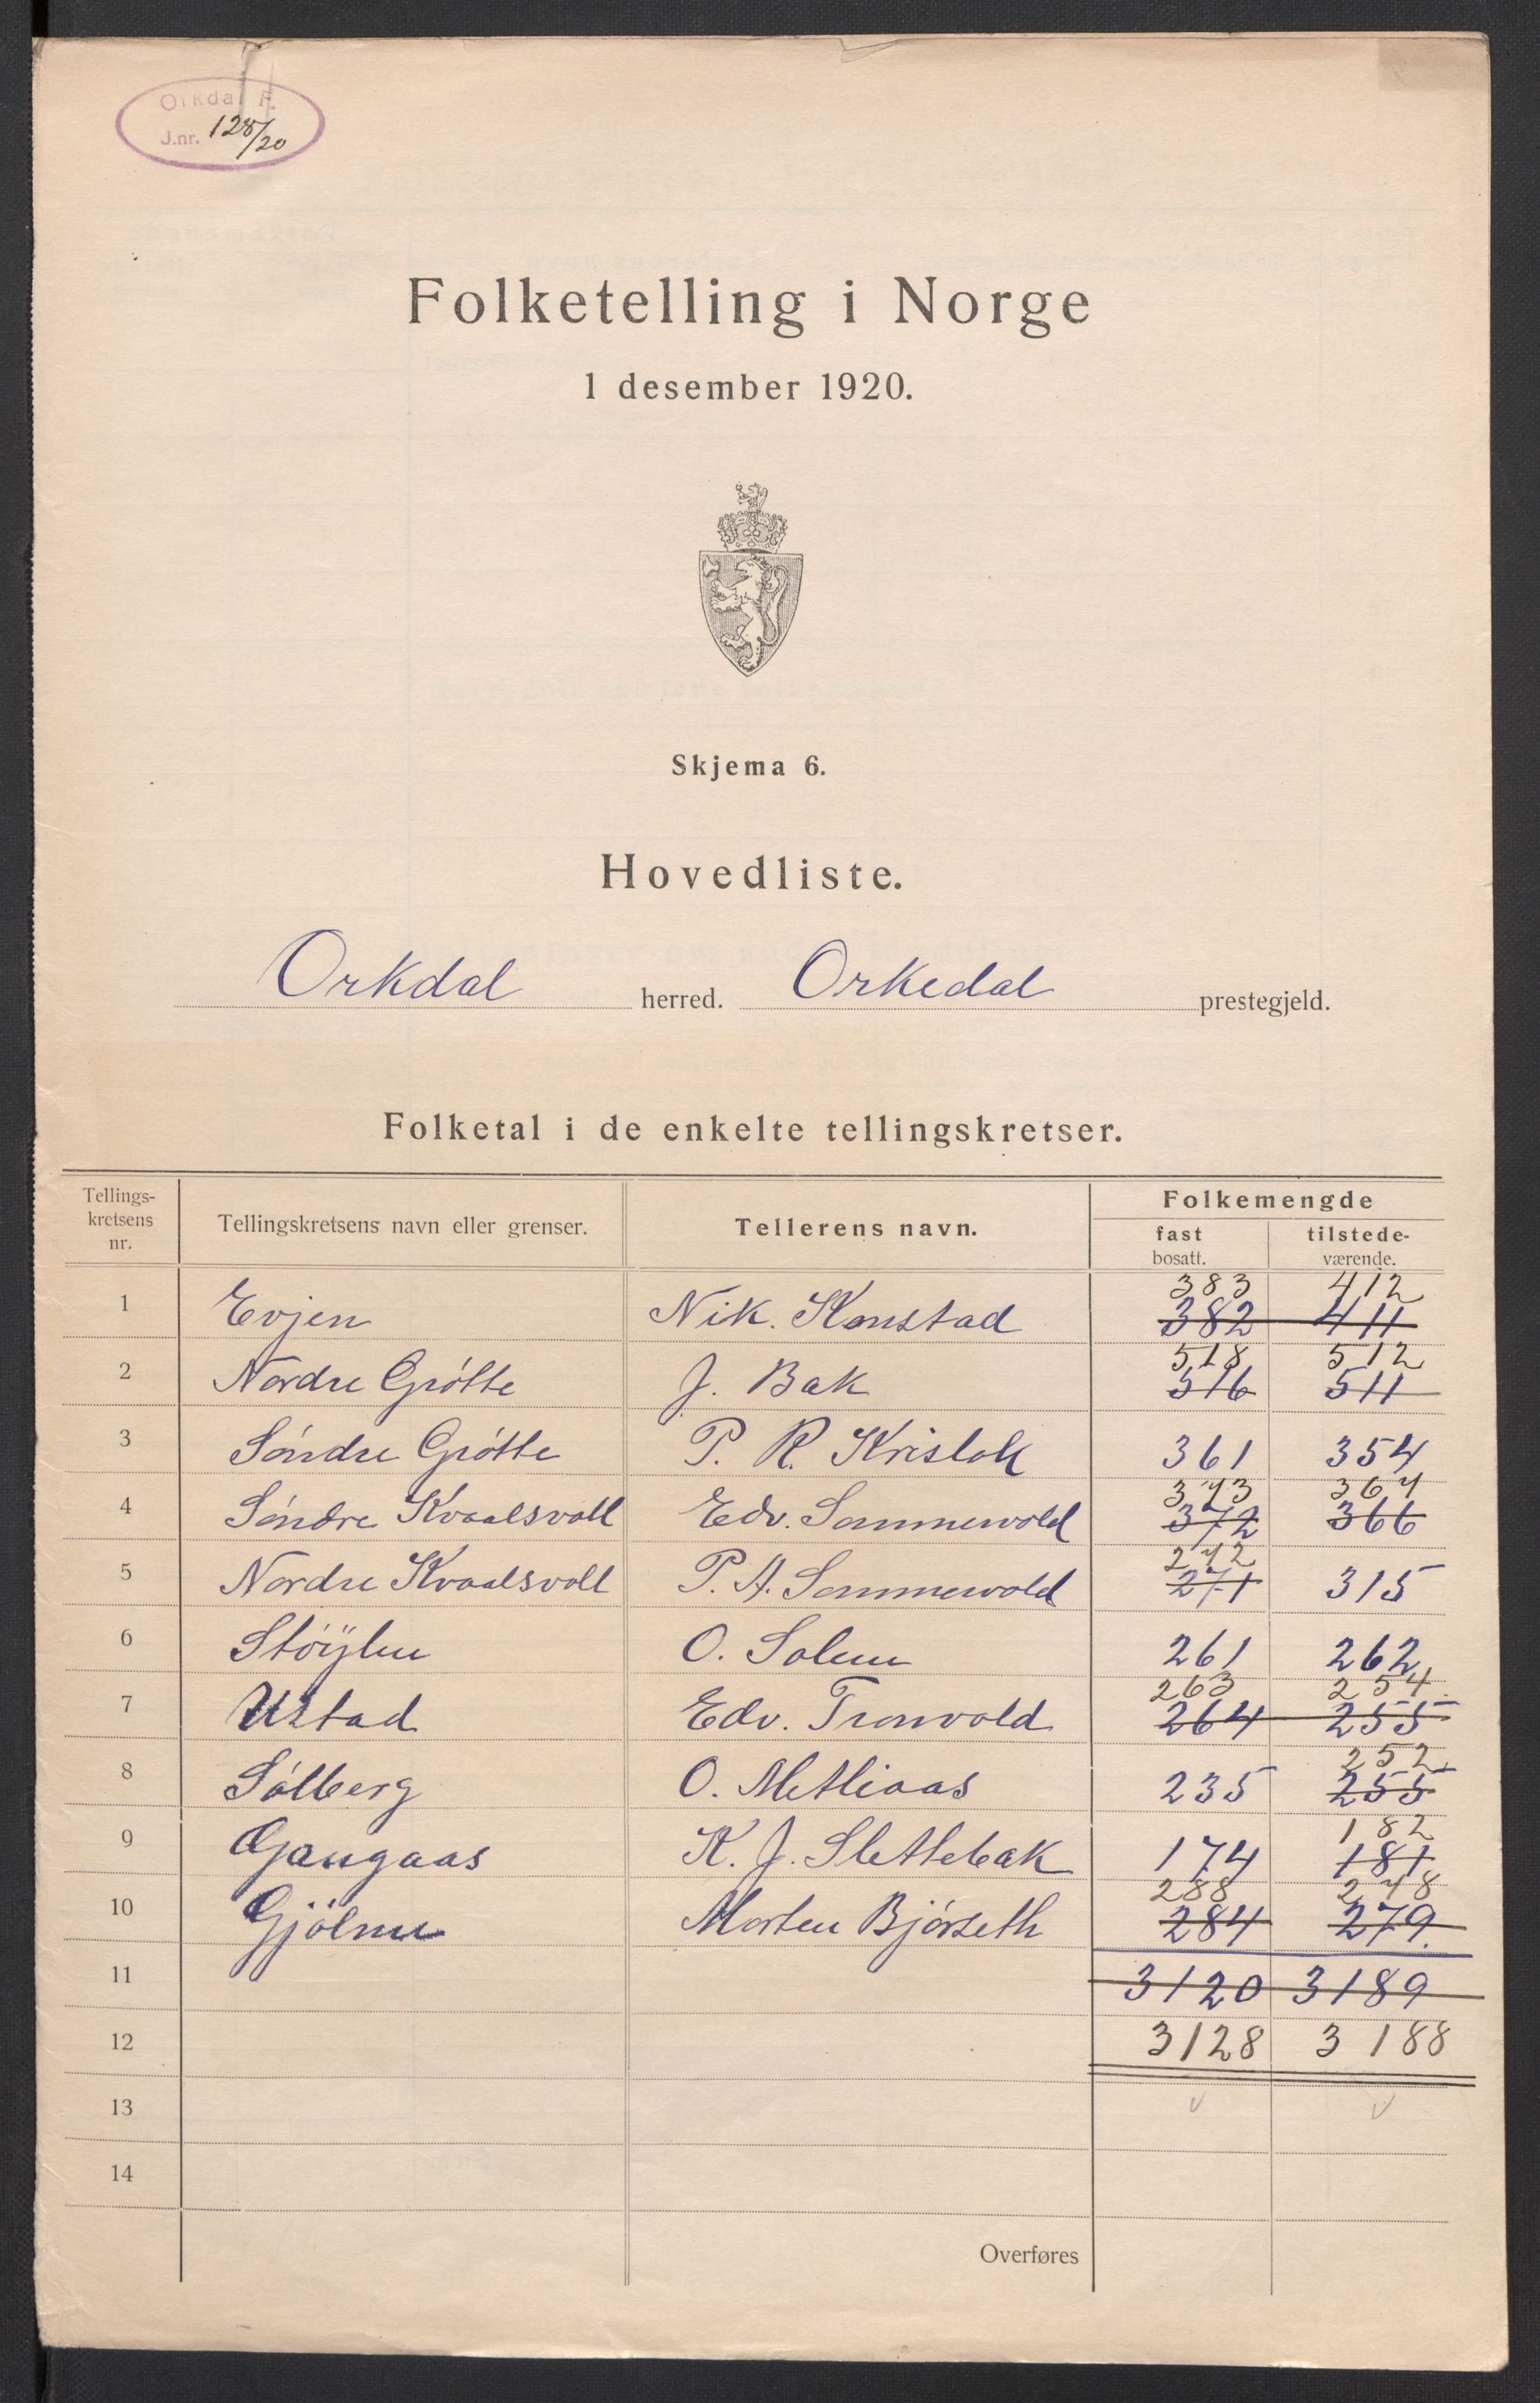 Orkdal F.
J.nr. 128/20
Folketelling i Norge
1 desember 1920.
Skjema 6.
Hovedliste.
Orkdal herred. Orkedal prestegjeld.
Folketal i de enkelte tellingskretser.
Tellings-
kretsens
nr.
Tellingskretsens navn eller grenser.
Tellerens navn.
Folkemengde
fast
bosatt.
tilstede-
værende.
383 412
1 Evjen Nik. Konstad 382 411
518 512
2 Nordre Grötte J. Bak 516 511
3 Söndre Grötte P. R. Kristoh 361 354
373 367
4 Söndre Kvaalsvoll Edv. Sommervold 372 366
272
5 Nordre Kvaalsvoll P. A. Sommervold 271 315
6 Stöylen O. Solem 261 262
263 254
7 Ustad Edv. Tronvold 264 255
252
8 Sølberg O. Metliaas 235 255
182
9 Gangaas K. J. Slettebak 174 181
288 278
10 Gjölme Morten Bjørseth 284 279
11 3120 3189
12 3128 3188
13
14
Overføres